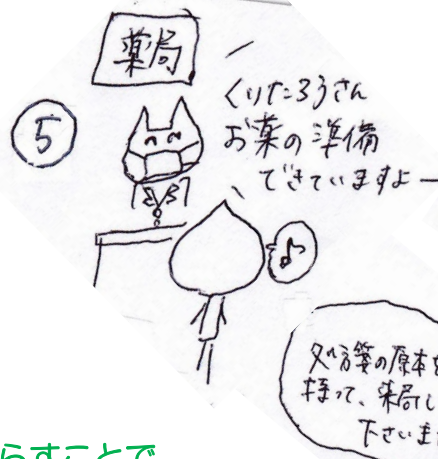 薬局
⑤
くりたろうさん
お薬の準備
できていますよー
♪
処方箋の原本を
持って、薬局
下さいま
らすことで